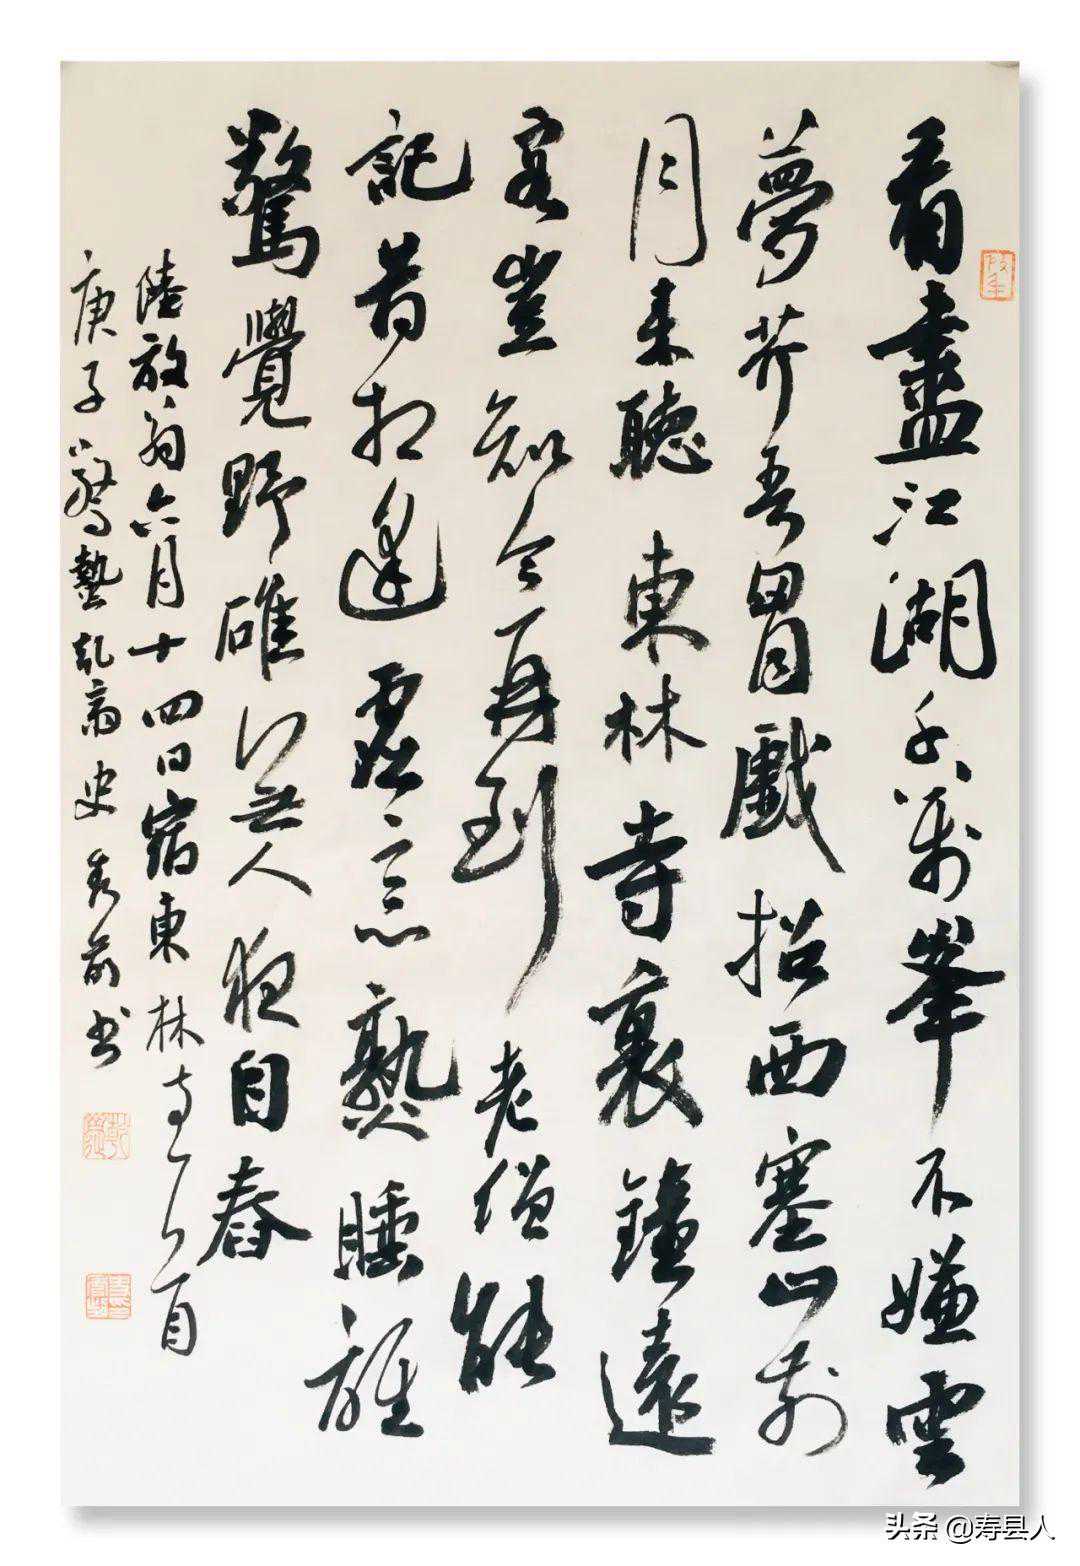 看盡江湖千萬峯不嫌雲
夢芥吾胃戲招西塞山前
月來聽東林寺裏鐘遠
客豈知今再到老僧能
記昔相逢虛窓熟睡誰
驚覺野碓無人夜自舂
陸放翁六月十四日宿東林寺一首
庚子驚蟄乾齋史秀前书
头条 @寿县人